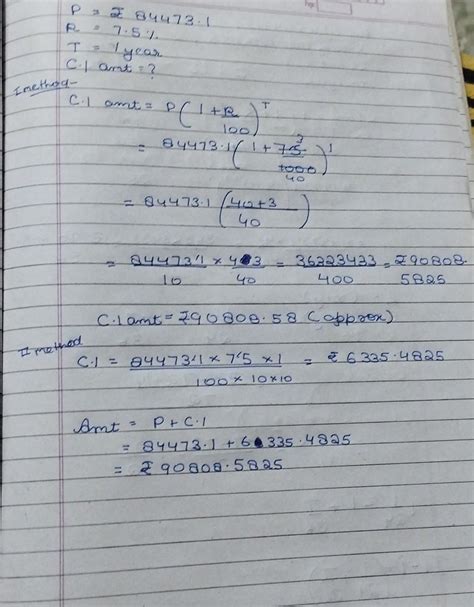 P = ₹ 84473.1
R = 7.5%
T = 1 year
C.I amt = ?
I method-
C.I amt = P(1+R/100)^T
= 84473.1(1+75/1000)^1 3 40
= 84473.1(40+3/40)
= 844731/10 × 43/40 = 36323433/400 = ₹90808.5825
C.I amt = ₹90808.58 (approx)
II method
C.I = 84473.1 × 7.5 × 1/100 × 10 × 10 = ₹6335.4825
Amt = P + C.I
= 84473.1 + 6335.4825
= ₹90808.5825